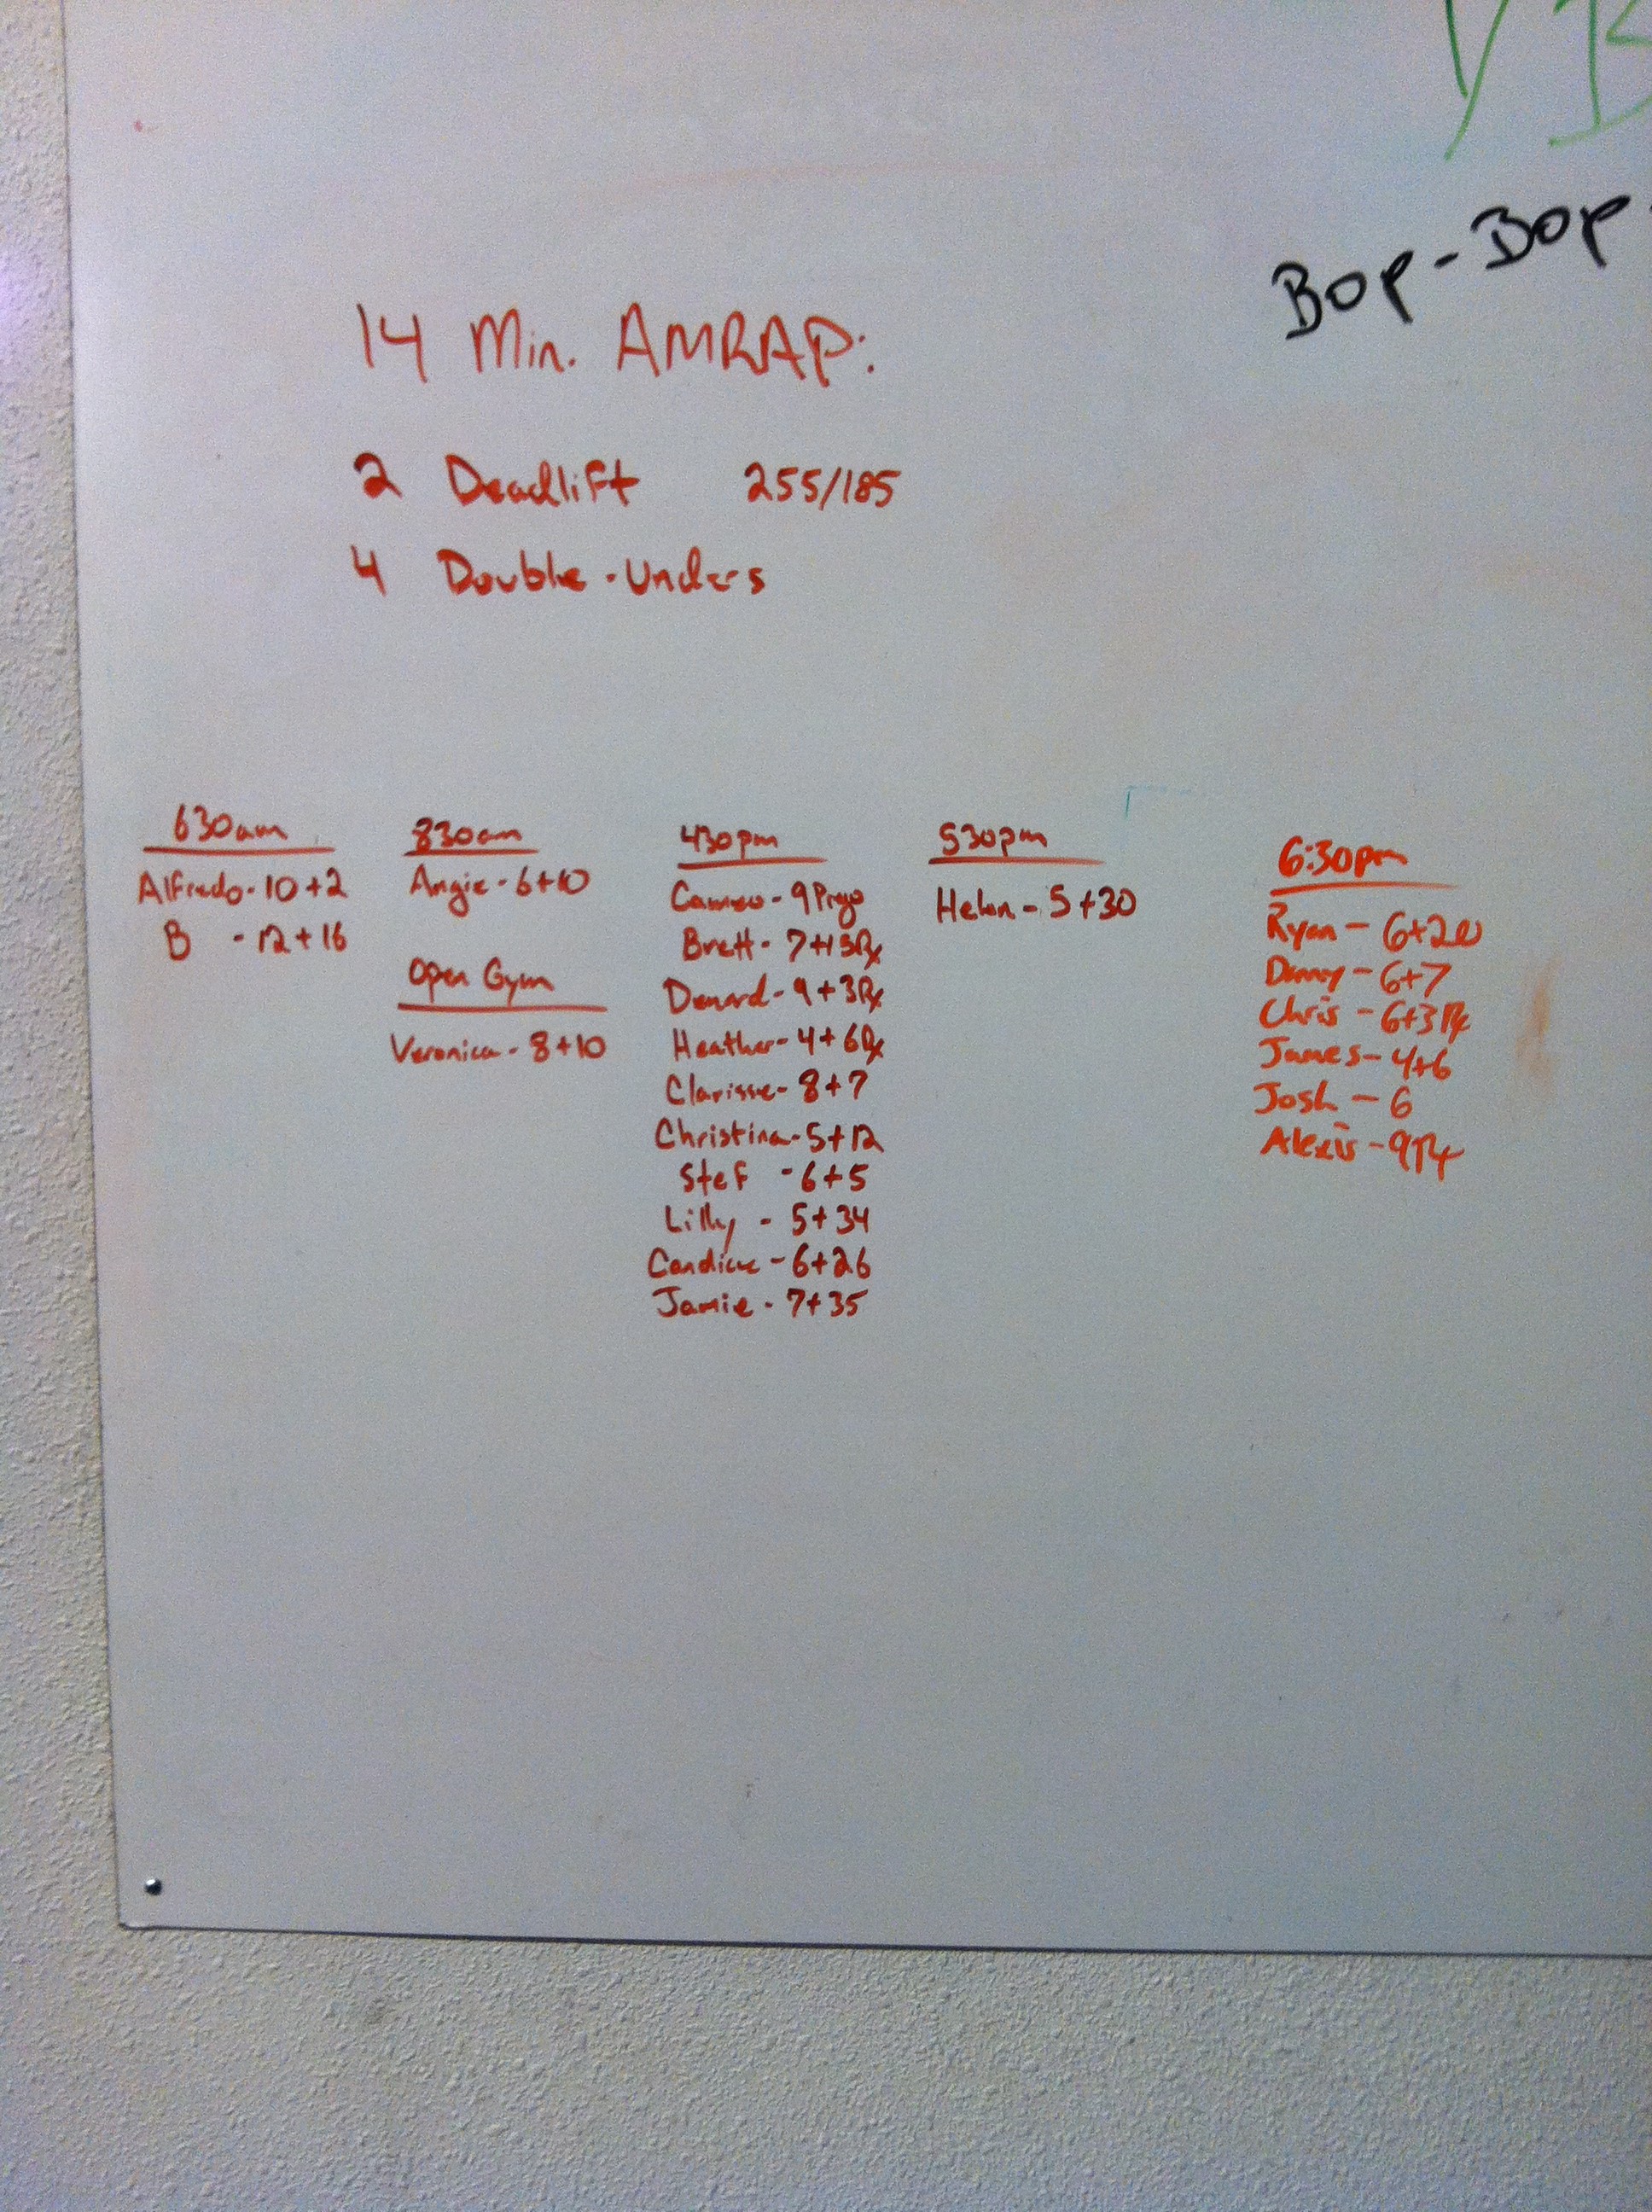 Bop-Bop
14 Min. AMRAP:
2 Deadlift 255/185
4 Double-Unders
630am
Alfredo-10+2
B -12+16
830am
Angie-6+10
Open Gym
Veronica-8+10
430pm
Cameo-9 Prego
Brett-7+15Rx
Denard-9+3Rx
Heather-4+6Rx
Clarisse-8+7
Christina-5+12
Stef -6+5
Lilly -5+34
Candice-6+26
Jamie-7+35
530pm
Helen-5+30
6:30pm
Ryan-6+20
Danny-6+7
Chris-6+3Rx
James-4+6
Josh-6
Alexis-9Rx